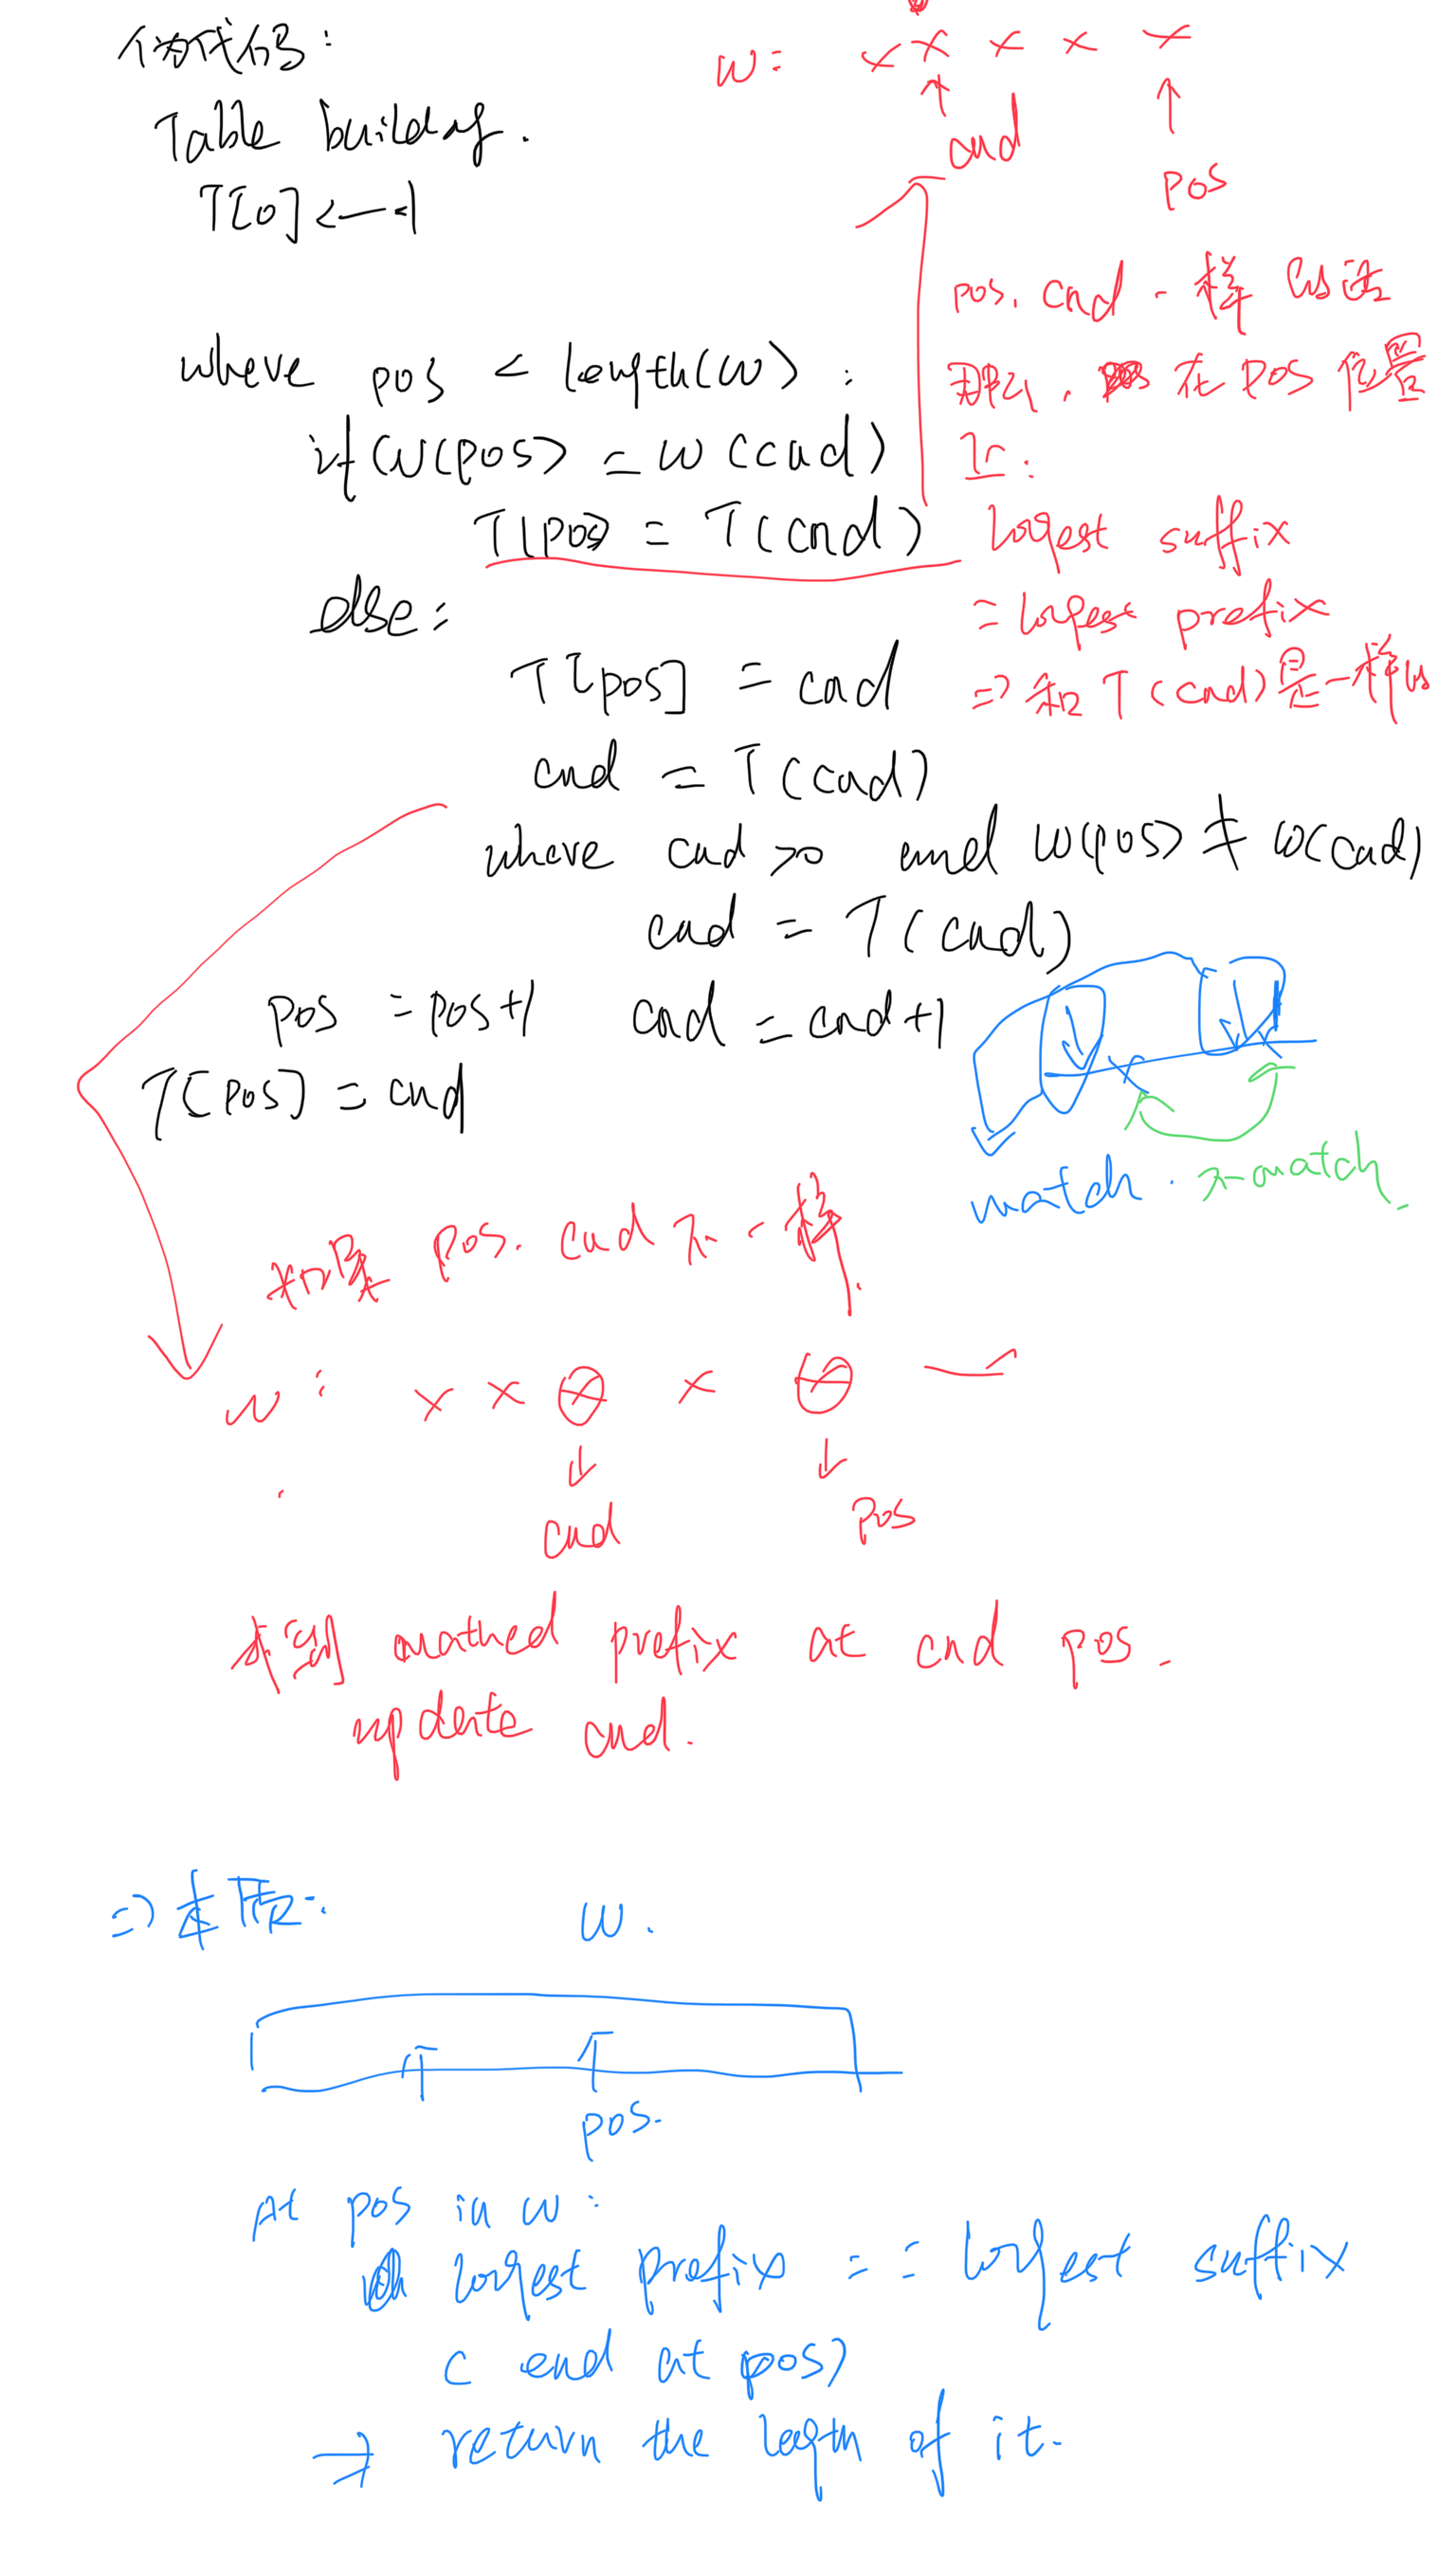 伪代码:
Table building.
T[0] ← -1
where pos < length(w) :
if w(pos) = w(cnd)
T(pos) = T(cnd)
else:
T[pos] = cnd
cnd = T(cnd)
where cnd >0 and w(pos) ≠ w(cnd)
cnd = T(cnd)
pos = pos+1 cnd = cnd+1
T[pos] = cnd
w: x x x x x
cnd
pos
pos. cnd 一样的话
那么, 在 pos 位置
上:
longest suffix
= longest prefix
=> 和 T(cnd) 是一样的
match. 不match.
如果 pos. cnd 不一样.
w: x x x x x
cnd
pos
求到 mathed prefix at cnd pos.
update cnd.
=> 本质:
w.
pos.
At pos in w:
longest prefix == longest suffix
( end at pos)
=> return the length of it.